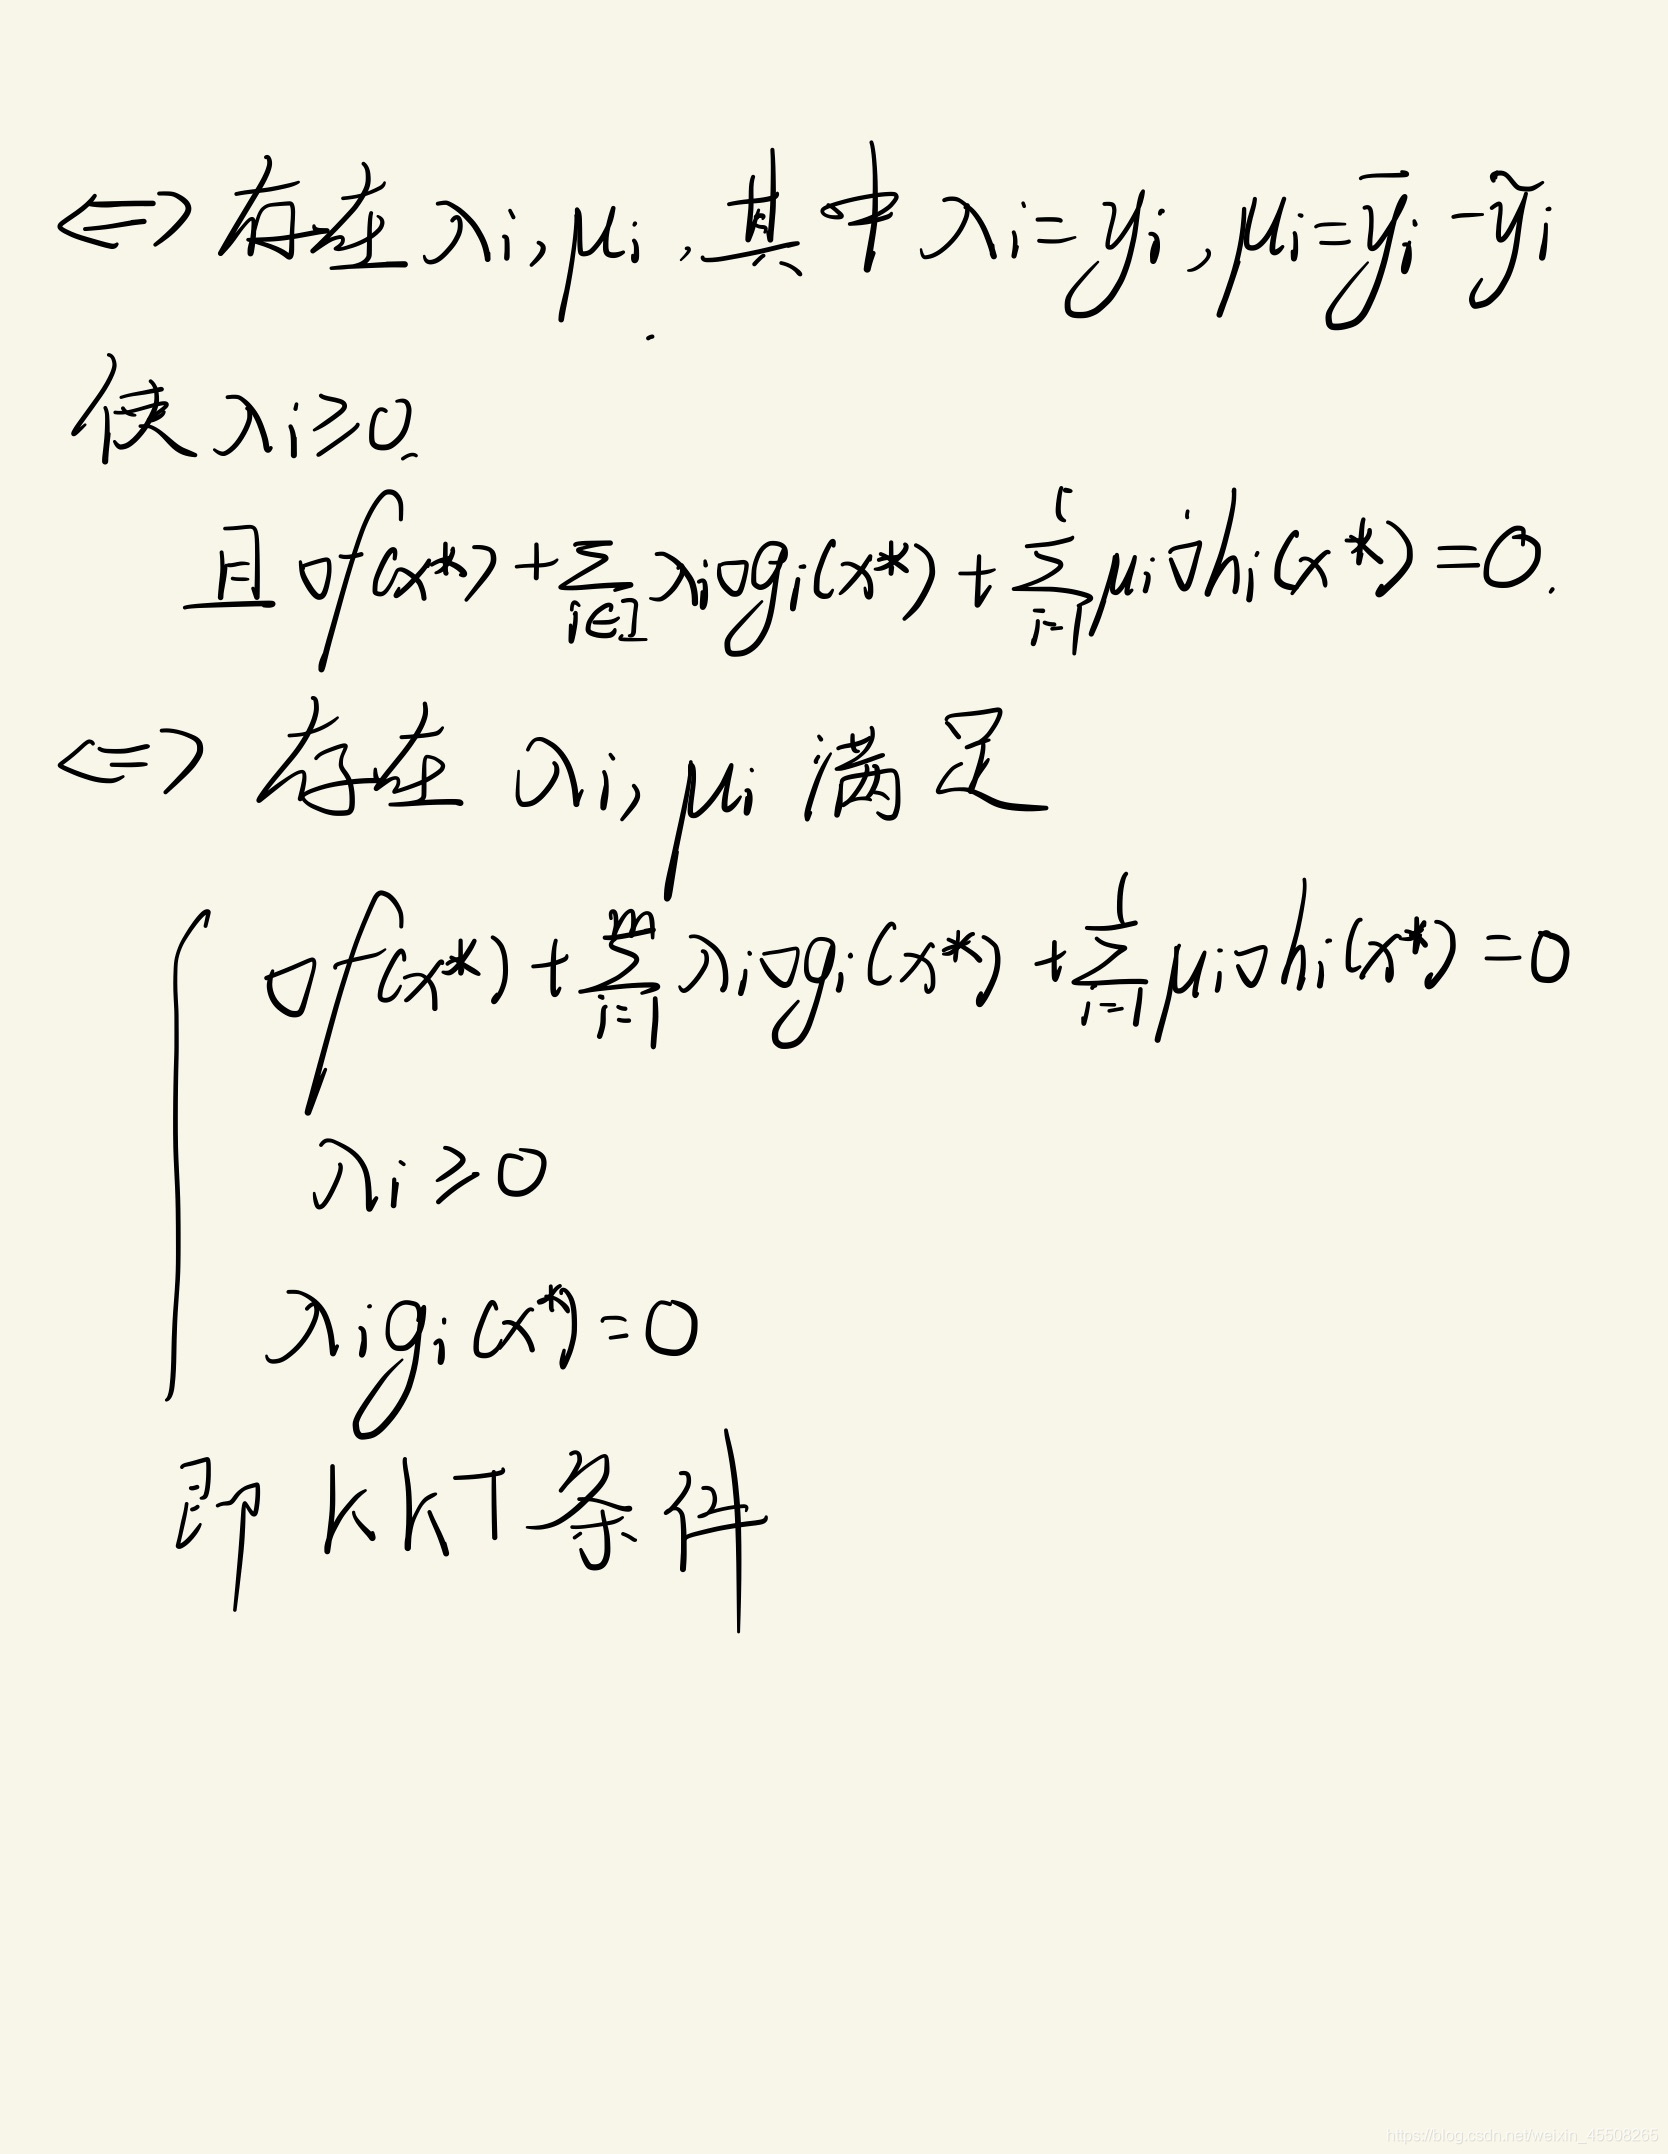 <=> 存在 λi, μi, 其中 λi = yi, μi = ȳi - ỹi
使 λi ≥ 0.
且 ∇f(x*) + ∑_{i∈I} λi∇gi(x*) + ∑_{i=1}^{l} μi∇hi(x*) = 0.
<=> 存在 λi, μi 满足
∇f(x*) + ∑_{i=1}^{m} λi∇gi(x*) + ∑_{i=1}^{l} μi∇hi(x*) = 0
λi ≥ 0
λigi(x*) = 0
即 KKT条件
https://blog.csdn.net/weixin_45508265